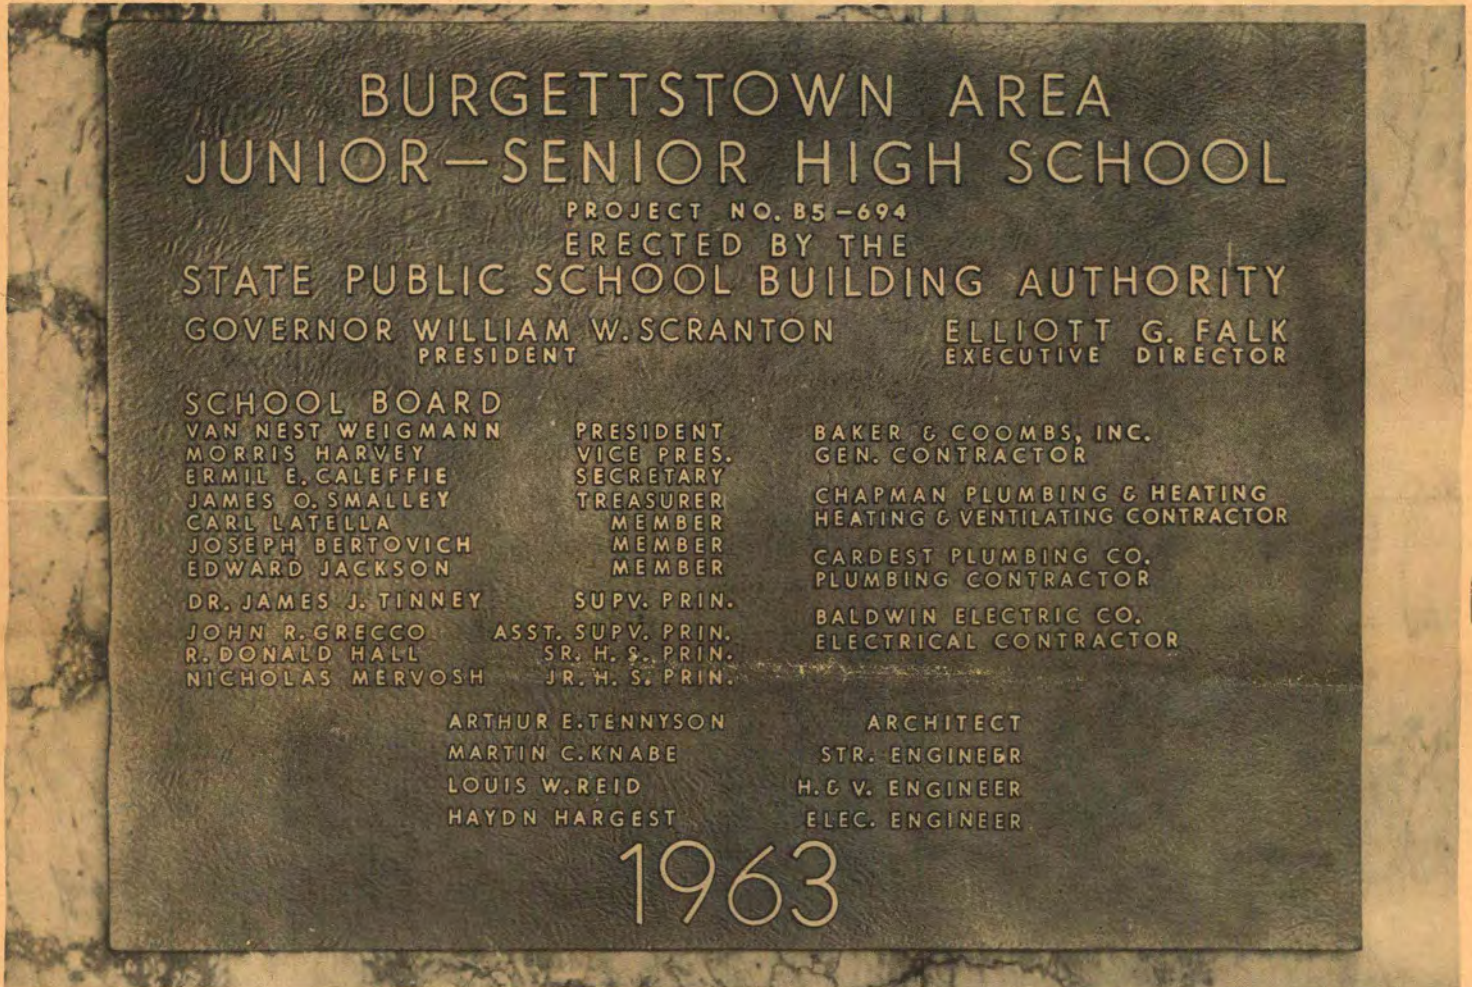 BURGETTSTOWN AREA
JUNIOR-SENIOR HIGH SCHOOL
PROJECT NO. B5-694
ERECTED BY THE
STATE PUBLIC SCHOOL BUILDING AUTHORITY
GOVERNOR WILLIAM W. SCRANTON
PRESIDENT
ELLIOTT G. FALK
EXECUTIVE DIRECTOR
SCHOOL BOARD
VAN NEST WEIGMANN PRESIDENT
MORRIS HARVEY VICE PRES.
ERMIL E. CALEFFIE SECRETARY
JAMES O. SMALLEY TREASURER
CARL LATELLA MEMBER
JOSEPH BERTOVICH MEMBER
EDWARD JACKSON MEMBER
DR. JAMES J. TINNEY SUPV. PRIN.
JOHN R. GRECCO ASST. SUPV. PRIN.
R. DONALD HALL SR. H. S. PRIN.
NICHOLAS MERVOSH JR. H. S. PRIN.
BAKER & COOMBS, INC.
GEN. CONTRACTOR
CHAPMAN PLUMBING & HEATING
HEATING & VENTILATING CONTRACTOR
CARDEST PLUMBING CO.
PLUMBING CONTRACTOR
BALDWIN ELECTRIC CO.
ELECTRICAL CONTRACTOR
ARTHUR E. TENNYSON ARCHITECT
MARTIN C. KNABE STR. ENGINEER
LOUIS W. REID H. & V. ENGINEER
HAYDN HARGEST ELEC. ENGINEER
1963